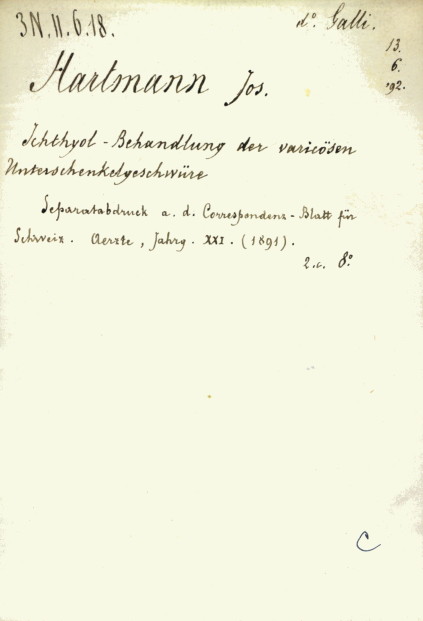 3N.II.6.18.
d°. Galli.
13.
6.
'92.
Hartmann Jos.
Ichthyol - Behandlung der varicösen
Unterschenkelgeschwüre
Separatabdruck a. d. Correspondenz - Blatt für
Schweiz. Aerzte, Jahrg. XXI. (1891).
2.c. 8°
C